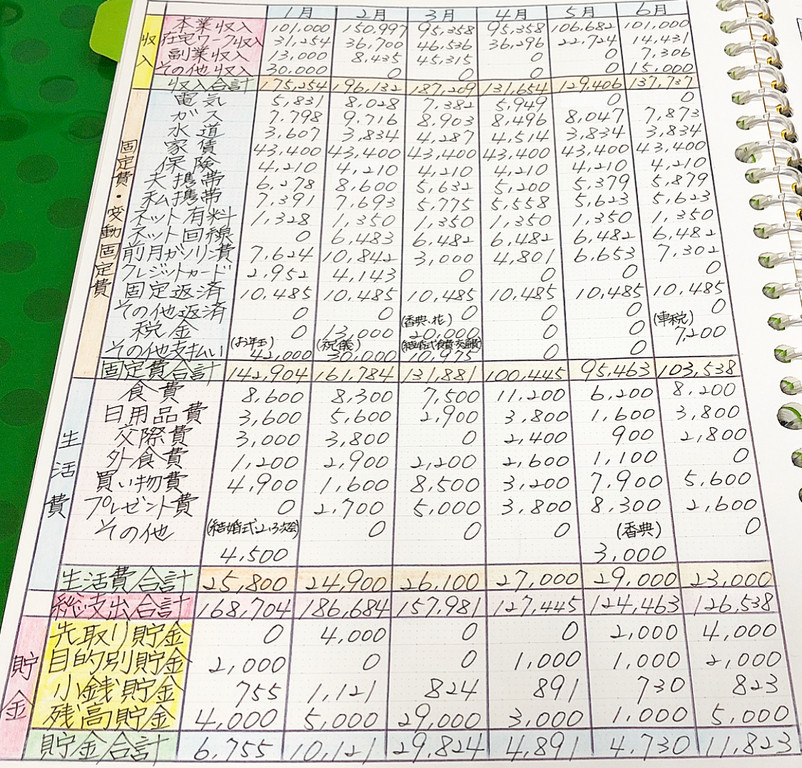 1月 2月 3月 4月 5月 6月
収入
本業収入 101,000 150,997 95,358 95,358 106,682 101,000
在宅ワーク収入 31,254 36,700 46,536 36,296 22,724 14,431
副業収入 13,000 8,435 45,315 0 0 7,306
その他収入 30,000 0 0 0 0 15,000
収入合計 175,254 196,132 187,209 131,654 129,406 137,737
固定費・変動固定費
電気 5,831 8,028 7,382 5,949 0 0
ガス 7,798 9,716 8,903 8,496 8,047 7,873
水道 3,607 3,834 4,287 4,514 3,834 3,834
家賃 43,400 43,400 43,400 43,400 43,400 43,400
保険 4,210 4,210 4,210 4,210 4,210 4,210
夫携帯 6,278 8,600 5,632 5,200 5,379 5,879
私携帯 7,391 7,693 5,775 5,558 5,623 5,623
ネット有料 1,328 1,350 1,350 1,350 1,350 1,350
ネット回線 0 6,483 6,482 6,482 6,482 6,482
前月ガソリン費 7,624 10,842 3,000 4,801 6,653 7,302
クレジットカード 2,952 4,143 0 0 0 0
固定返済 10,485 10,485 10,485 10,485 10,485 10,485
その他返済 0 0 0 0 0 0
(香典、花) (車税)
税金 0 13,000 20,000 0 0 7,200
(お年玉) (祝儀)
その他支払い 42,000 30,000 10,975 0 0
固定費合計 142,904 161,784 131,881 100,445 95,463 103,538
生活費
食費 8,600 8,300 7,500 11,200 6,200 8,200
日用品費 3,600 5,600 2,900 3,800 1,600 3,800
交際費 3,000 3,800 0 2,400 900 2,800
外食費 1,200 2,900 2,200 2,600 1,100 0
買い物費 4,900 1,600 8,500 3,200 7,900 5,600
プレゼント費 0 2,700 5,000 3,800 8,300 2,600
その他 (結婚式2,3次会) 0 0 0 (香典) 0
4,500 3,000
生活費合計 25,800 24,900 26,100 27,000 29,000 23,000
総支出合計 168,704 186,684 157,981 127,445 124,463 126,538
貯金
先取り貯金 0 4,000 0 0 2,000 4,000
目的別貯金 2,000 0 0 1,000 1,000 2,000
小銭貯金 755 1,121 824 891 730 823
残高貯金 4,000 5,000 29,000 3,000 1,000 5,000
貯金合計 6,755 10,121 29,824 4,891 4,730 11,823